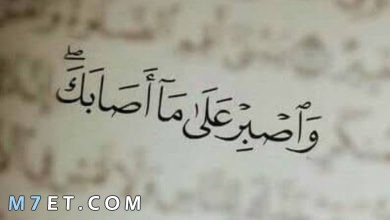 وَٱصۡبِرۡ عَلَىٰ مَآ أَصَابَكَۖ
M7ET.COM